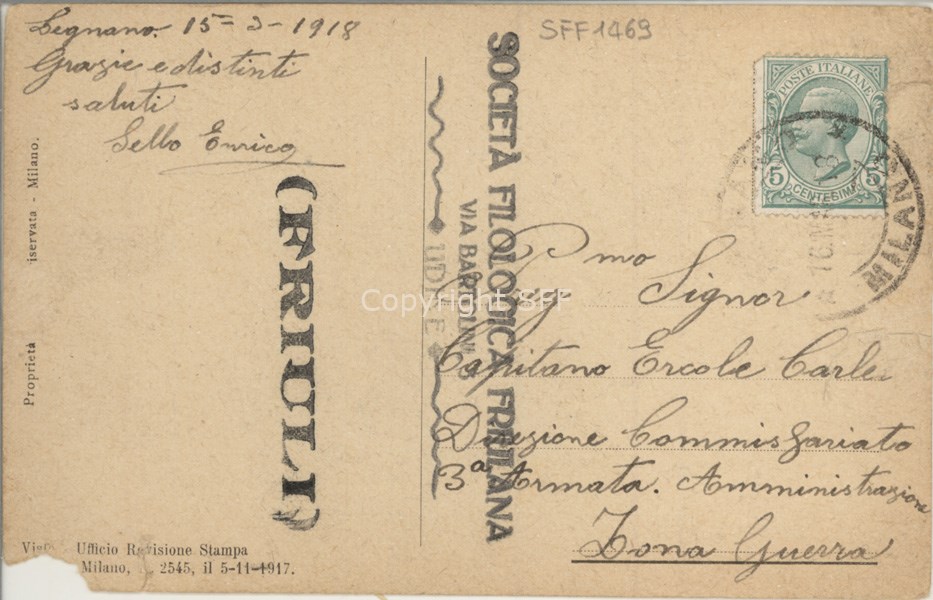 Legnano. 15-3-1918
Grazie e distinti
saluti
Sello Enrico
SFF1469
POSTE ITALIANE
5 5
CENTESIMI
MILANO
16.M
SOCIETÀ FILOLOGICA FRIULANA
VIA BARTOLINI
UDINE
(FRIULI)
Copyright SFF
Pmo Signor
Capitano Ercole Carle
Direzione Commissariato
3ª Armata. Amministrazione
Zona Guerra
Proprietà iservata - Milano.
Ufficio Revisione Stampa
Milano, 2545, il 5-11-1917.